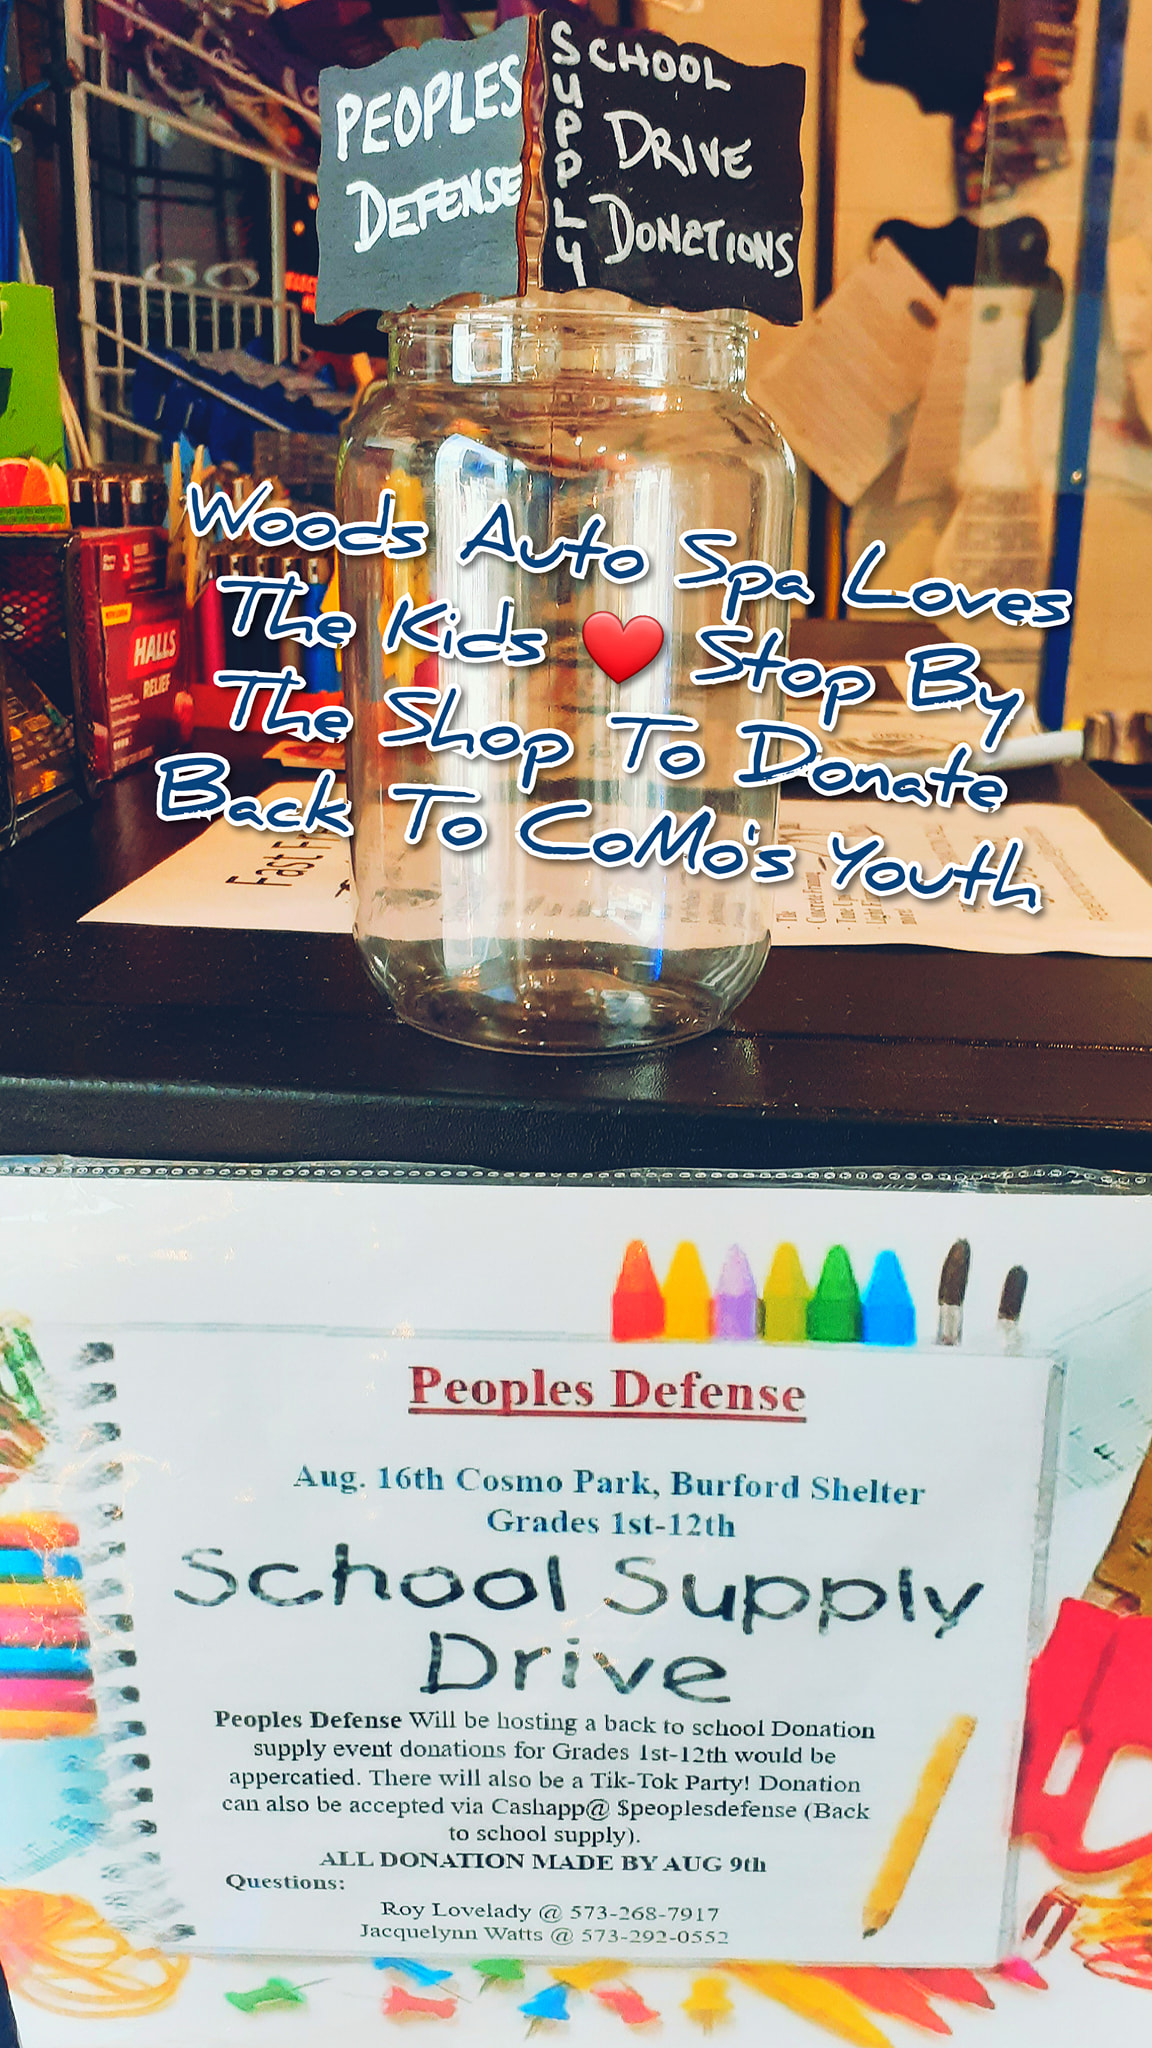 PEOPLES
DEFENSE
SCHOOL
SUPPLY
DRIVE
DONATIONS
HALLS
RELIEF
Woods Auto Spa Loves
The Kids ❤️ Stop By
The Shop To Donate
Back To CoMo's Youth
Fast
Peoples Defense
Aug. 16th Cosmo Park, Burford Shelter
Grades 1st-12th
School Supply
Drive
Peoples Defense Will be hosting a back to school Donation
supply event donations for Grades 1st-12th would be
appercatied. There will also be a Tik-Tok Party! Donation
can also be accepted via Cashapp@ $peoplesdefense (Back
to school supply).
ALL DONATION MADE BY AUG 9th
Questions:
Roy Lovelady @ 573-268-7917
Jacquelynn Watts @ 573-292-0552